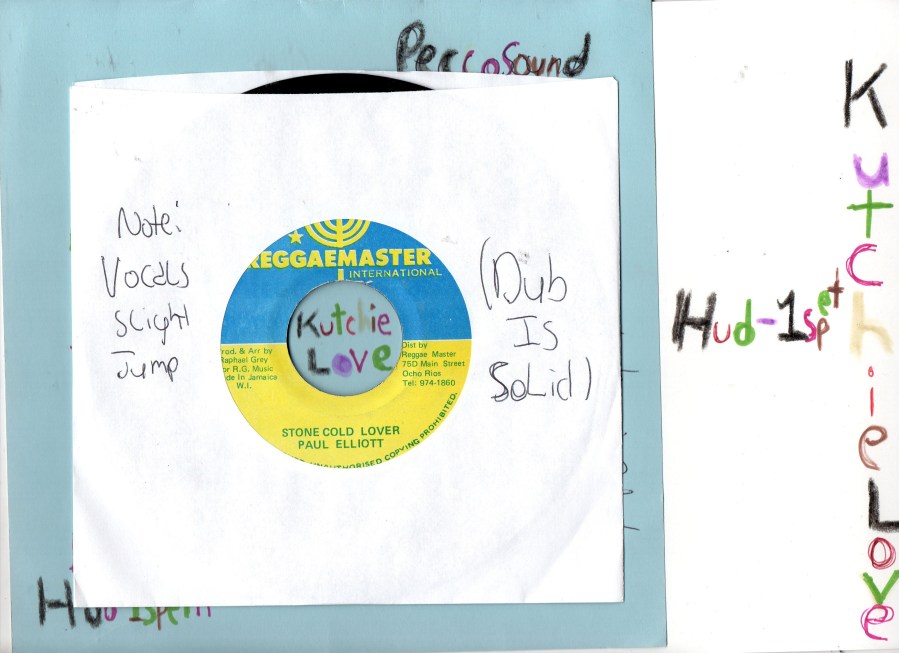 PeccoSound
Note:
Vocals
Slight
Jump
REGGAEMASTER
INTERNATIONAL
Prod. & Arr by
Raphael Grey
or R.G. Music
de In Jamaica
W.I.
Kutchie
Love
Dist by
Reggae Master
75D Main Street
Ocho Rios
Tel: 974-1860
STONE COLD LOVER
PAUL ELLIOTT
UNAUTHORISED COPYING PROHIBITED.
(Dub
Is
SoLid)
KutchieLove